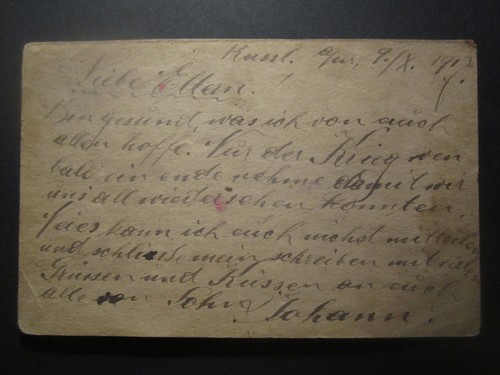 Russl. am, 9./X. 1917.
Liebe Eltern!
Bin gesund, was ich von euch
allen hoffe. Nur der Krieg wen
bald ein ende nehme damit wir
uns all wiedersehen konnten.
Vies kann ich euch nichst mitteilen
und schliese mein schreiben mit vielen
Grüssen und Küssen an euch
alle von Sohn Johann.